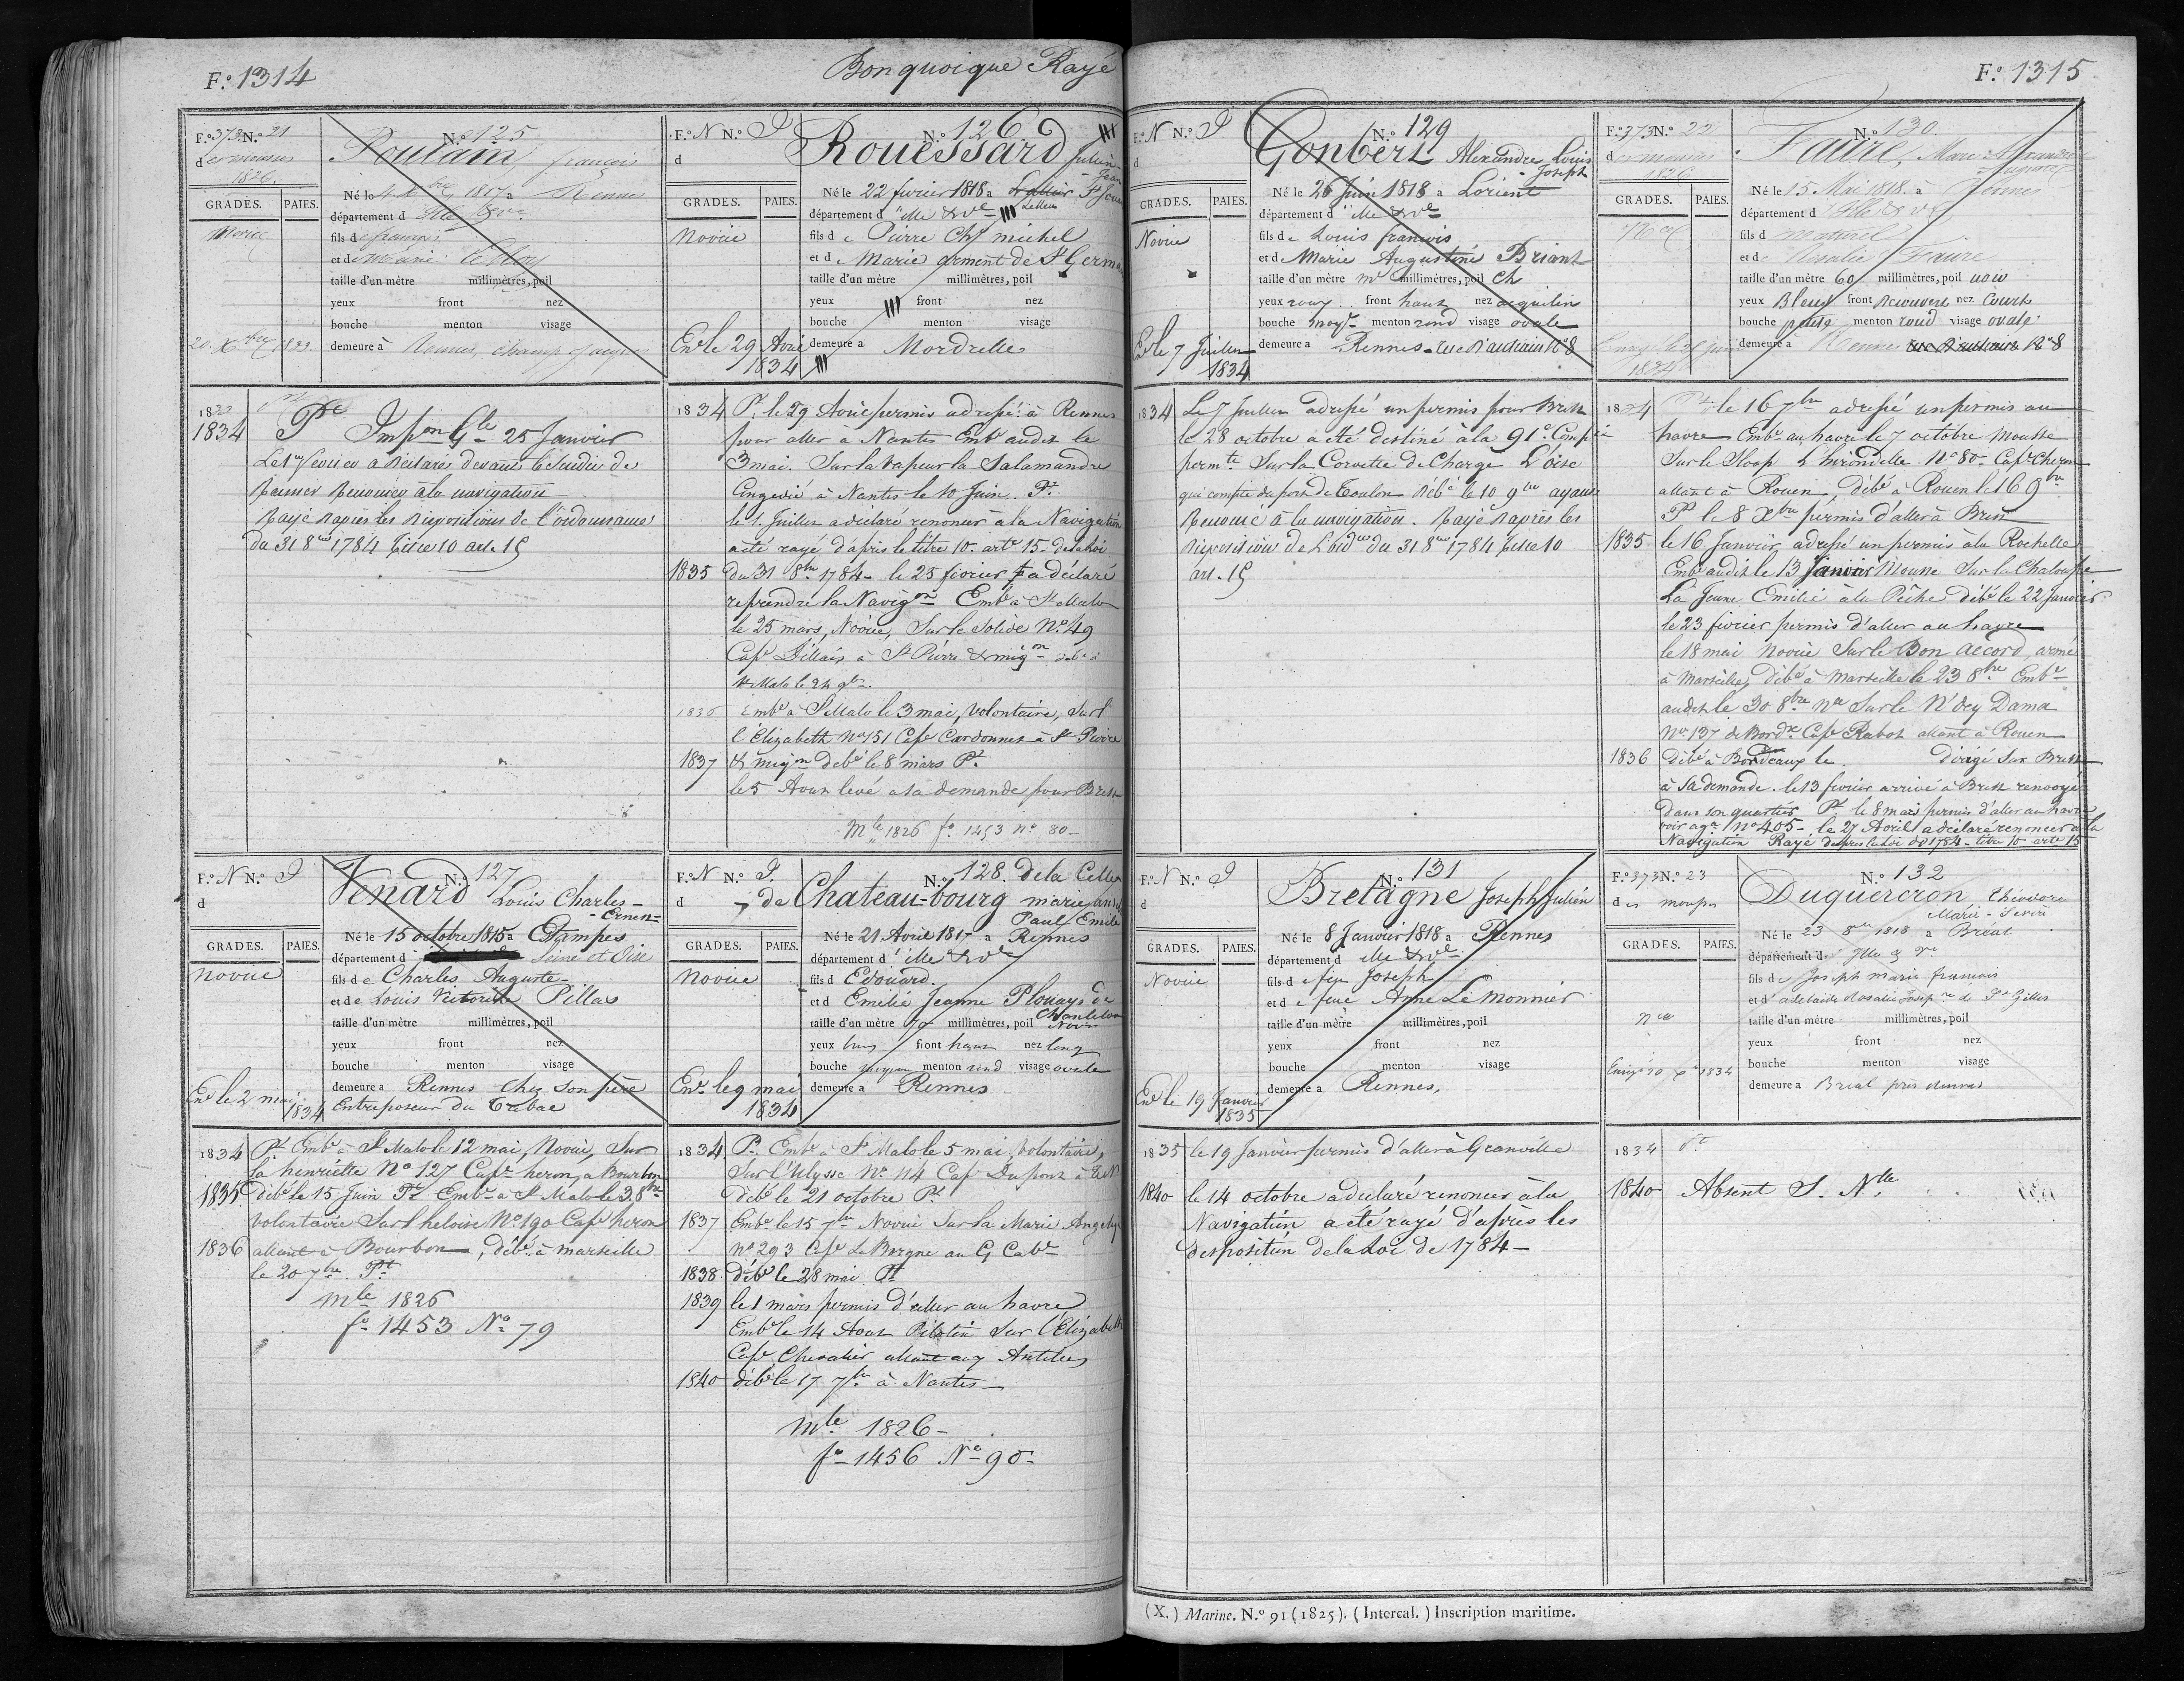 F.o 1314
Bon quoique Rayé
F.o 373 N.o 21
des mousses
1826.
GRADES. PAIES.
Novice
20 Xbre 1833.
N.o 125
Poulain, françois
Né le 4 Xbre 1817 a Rennes
département d Ille & Ve
fils de françois
et de Marie Le Roy
taille d'un mètre millimètres, poil
yeux front nez
bouche menton visage
demeure à Rennes, champ Jacquet
1833
1834 Pt Impon Gle 25 Janvier
Le 1er fevrier a déclaré devant le Sindic de
Rennes Renoncer à la navigation
Rayé d'après les dispositions de l'ordonnance
du 31 8bre 1784 titre 10 art. 15
F.o N N.o I
d
GRADES. PAIES.
Novice
Enr le 29 Avril
1834
N.o 126
Rouëssard Julien
Jean
Né le 22 fevrier 1818 a
département d Ille & Ve
fils de Pierre Chs michel
et de Marie orment de St Germain
taille d'un mètre millimètres, poil
yeux front nez
bouche menton visage
demeure a Mordrelle
1834 Pt. le 29 Avril permis adressé à Rennes
pour aller à Nantes Embé audit le
3 mai. Sur la vapeur la Salamandre
Congédié à Nantes le 10 Juin. Pt.
le 1. Juillet a déclaré renoncer à la Navigation
a été rayé d'après le titre 10. arte 15 de la loi
1835 du 31 8bre 1784 - le 25 fevrier a déclaré
reprendre la Navigon Embé à St Malo
le 25 mars, Novice, Sur le Solide No 49
Cape Dillais à St Pierre & miqon débé à
St Malo le 24 9bre.
1836 Embé à St Malo le 3 mai, Volontaire, Sur
l'Elizabeth No 151 Cape Cardonnet à St Pierre
1837 & miqon débé le 8 mars Pt.
le 5 Aout levé a sa demande pour Brest
Mle 1826 fo 1453 no 80-
F.o N N.o I
d
GRADES. PAIES.
Novice
Enr le 2 mai
1834
N.o 127
Venard Louis Charles-
-Ernest-
Né le 15 octobre 1815 a Etampes
département d Seine et Oise
fils de Charles Auguste-
et de Louis Victorine Pillas
taille d'un mètre millimètres, poil
yeux front nez
bouche menton visage
demeure a Rennes Chez Son père
Entreposeur du Tabac
1834 Pt. Embé à St Malo le 12 mai, Novice, Sur
la henriette No 127 Cape heron, a Bourbon
1835 débé le 15 Juin Pt Embé a St Malo le 3 8bre
volontaire Sur l'heloise No 190 Cape heron
1836 allant à Bourbon, débé à marseille
le 20 7bre. Pt
Mle 1826
fo 1453 No 79
F.o N N.o I.
d
GRADES. PAIES.
Novice
Enr le 9 mai
1834
N.o 128. de la Celle
de Chateau-bourg marie
Paul Emile
Né le 21 Avril 1817 a Rennes
département d Ille & Ve
fils d Edouard.
et d Emelie Jeanne Plouays de
Chantelou
taille d'un mètre 70 millimètres, poil Noir
yeux bruns front haut nez long
bouche moyenne menton rond visage ovale
demeure a Rennes
1834. Pt. Embé à St Malo le 5 mai, Volontaire,
Sur l'Ulysse No 114 Cape Dupont à
Débé le 21 octobre Pt
1837 Embé le 15 7bre Novice Sur la Marie
no 293 Cape Le Borgne au G Cabe
1838. débé le 28 mai Pt
1839 le 1 mars permis d'aller au havre
Embé le 14 Aout Pilotin Sur l'Elizabeth
Cape Chevalier allant aux Antilles
1840 débé le 17 7bre à Nantes-
Mle 1826-
fo 1456 No 90-
F.o 1315
F.o N N.o I
d
GRADES. PAIES.
Novice
Enr le 7 Juillet
1834
N.o 129
Gonbert Alexandre Louis
Joseph
Né le 26 Juin 1818 a Lorient
département d Ille & Ve
fils de Louis francois
et de Marie Augustine Briant
taille d'un mètre millimètres, poil Ch
yeux roux front haut nez acquilin
bouche moye menton rond visage ovale
demeure a Rennes rue No 8
1834 Le 7 Juillet adressé un permis pour Brest
le 28 octobre a été destiné à la 91e. Compie
permte Sur la Corvette de Charge L'oise
qui compte du port de Toulon débé le 10 9bre ayant
Renoncé à la navigation. Rayé d'après les
disposition de L'ordce du 31 8bre 1784 titre 10
art. 15
F.o 373 N.o 22
des mousses
1826
GRADES. PAIES.
1834
N.o 130.
Faure, Marc Alexandre
Auguste
Né le 15 Mai 1818. à Rennes
département d Ille & Ve
fils d naturel
et de Rosalie Faure
taille d'un mètre 60 millimètres, poil noir
yeux Bleus front découvert nez Court
bouche petite menton rond visage ovale
demeure à Rennes No 8
1834 Pt. le 16 7bre adressé un permis au
havre Embé au havre le 7 octobre Mousse
Sur le Sloop L'hirondelle No 80- Cape Cheron
allant à Rouen, débé à Rouen le 16 9bre
Pt le 8 Xbre permis d'aller à Brest
1835 le 16 Janvier adressé un permis à la Rochelle
Embé audit le 13 Janvier Mousse Sur la Chaloupe
La Jeune Emélie à la Pêche débé le 22 Janvier
le 23 fevrier permis d'aller au havre
le 18 mai Novice Sur le Bon accord, armé
à Marseille, débé à Marseille le 23 8bre Embé
audit le 30 8bre Nce Sur le Dama
No 137 de Bordx Cape Rabot allant à Rouen
1836 débé à Bordeaux le . dirigé Sur Brest
à sa demande. le 13 fevrier arrivé à Brest renvoyé
Dans son quartier Pt. le 8 mars permis d'aller au havre
No 405- le 27 Avril a déclaré renoncer à la
Navigation Rayé d'après la Loi de 1784 - titre 10 arte 15
F.o N N.o I
d
GRADES. PAIES.
Novice
Enr le 19 Janvier
1835
N.o 131
Bretagne Joseph Julien
Né le 8 Janvier 1818 a Rennes
département d Ille & Ve
fils d e feu Joseph
et d e feue Anne Le Monnier
taille d'un mètre millimètres, poil
yeux front nez
bouche menton visage
demeure a Rennes.
1835 le 19 Janvier permis d'aller à Granville
1840 le 14 octobre a déclaré renoncer à la
Navigation a été rayé d'après les
desposition de la Loi de 1784-
F.o 373 N.o 23
des mousses
GRADES. PAIES.
Nce
1834
N.o 132
Duquercron Théodore
Marie
Né le 23 8bre 1818 a Bréal
département d Ille & Ve
fils de Joseph marie francois
et d'adelaide Rosalie de St Gilles
taille d'un mètre millimètres, poil
yeux front nez
bouche menton visage
demeure a Bréal près Rennes
1834 Pt
1840 Absent S. Nlle
(X.) Marine. N.o 91 (1825). (Intercal.) Inscription maritime.